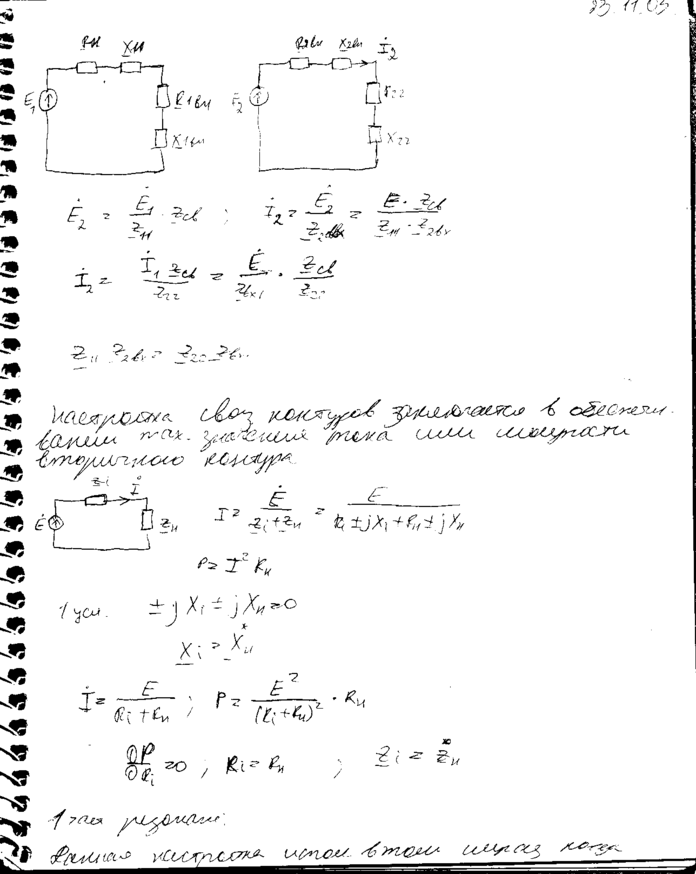 23.11.03
R11 X11
E1
R1вн
X1вн
R2вн X2вн İ2
Ė2
r22
X22
Ė2 = Ė1/Z11 · Zсв ; İ2 = Ė2/Z2вх = E · Zсв/Z11 · Z2вх
İ2 = İ1 Zсв/Z22 = Ė/Zвх1 · Zсв/Z22
Z11 Z2вх = Z22 Zвх
Настройка связ контуров заключается в обеспечи-
вании max. значения тока или мощности
вторичного контура
Zi İ
Ė
Zн
I = Ė/Zi+Zн = E/Ri±jXi+Rн±jXн
P = I² Rн
1 усл. ±jXi ± jXн = 0
Xi = X*н
İ = E/Ri+Rн ; P = E²/(Ri+Rн)² · Rн
∂P/∂Ri = 0 ; Ri = Rн ; Zi = Z*н
1 резонанс.
Данная настройка испол. в том когда